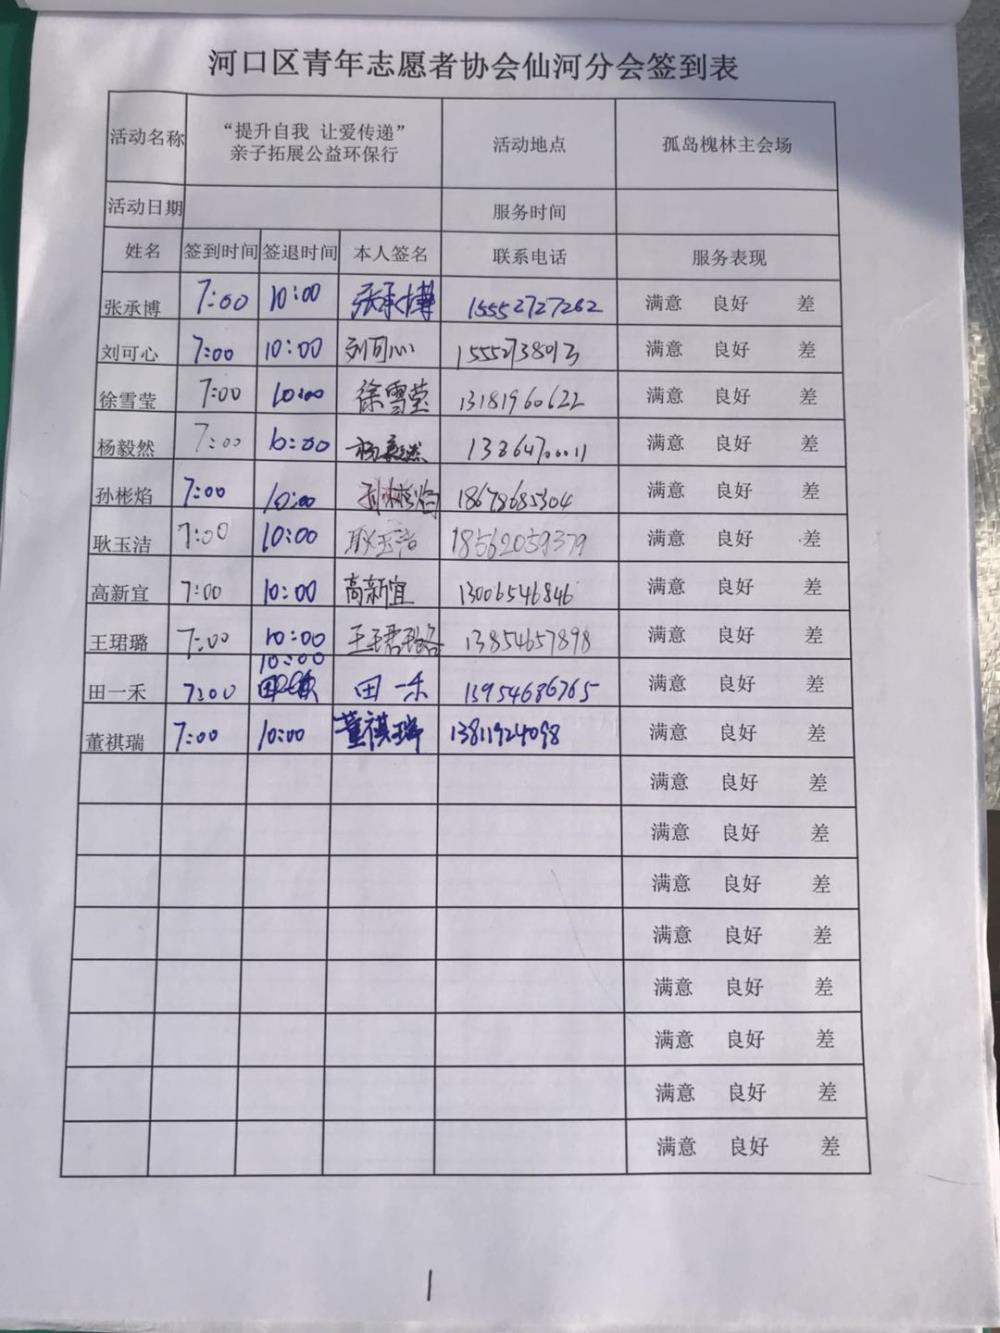 河口区青年志愿者协会仙河分会签到表
活动名称 “提升自我 让爱传递” 亲子拓展公益环保行 活动地点 孤岛槐林主会场
活动日期 服务时间
姓名 签到时间 签退时间 本人签名 联系电话 服务表现
张承博 7:00 10:00 张承博 15552727262 满意 良好 差
刘可心 7:00 10:00 刘可心 15552738013 满意 良好 差
徐雪莹 7:00 10:00 徐雪莹 13181960622 满意 良好 差
杨毅然 7:00 10:00 杨毅然 13864700011 满意 良好 差
孙彬焰 7:00 10:00 孙彬焰 18678685304 满意 良好 差
耿玉洁 7:00 10:00 耿玉洁 18562059379 满意 良好 差
高新宜 7:00 10:00 高新宜 13006546846 满意 良好 差
王珺璐 7:00 10:00 王珺璐 13854657898 满意 良好 差
田一禾 7:00 10:00 田一禾 13954686765 满意 良好 差
董祺瑞 7:00 10:00 董祺瑞 13811924098 满意 良好 差
满意 良好 差
满意 良好 差
满意 良好 差
满意 良好 差
满意 良好 差
满意 良好 差
满意 良好 差
满意 良好 差
1